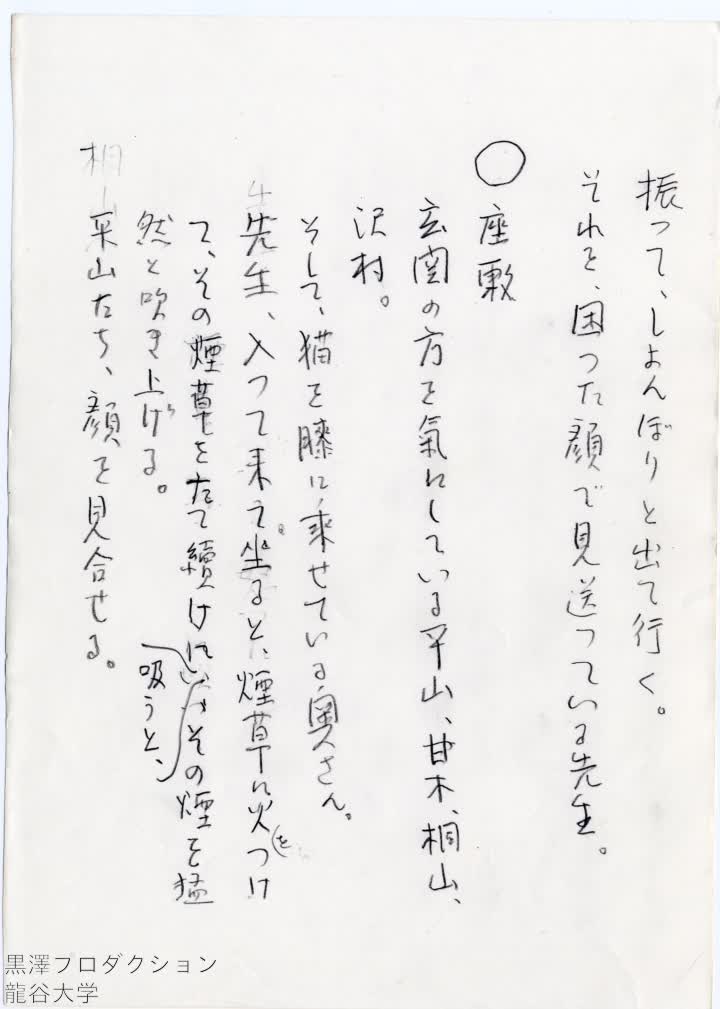 振って、しよんぼりと出て行く。
それを、困つた顔で見送つている先生。
○座敷
玄関の方を氣にしている平山、甘木、桐山、
沢村。
そして、猫を膝に乗せている奥さん。
先生、入つて来て坐ると、煙草に火をつけ
て、その煙草をたて續けに吸うと、その煙を猛
然と吹き上げる。
平山たち、顔を見合せる。
黒澤プロダクション
龍谷大学